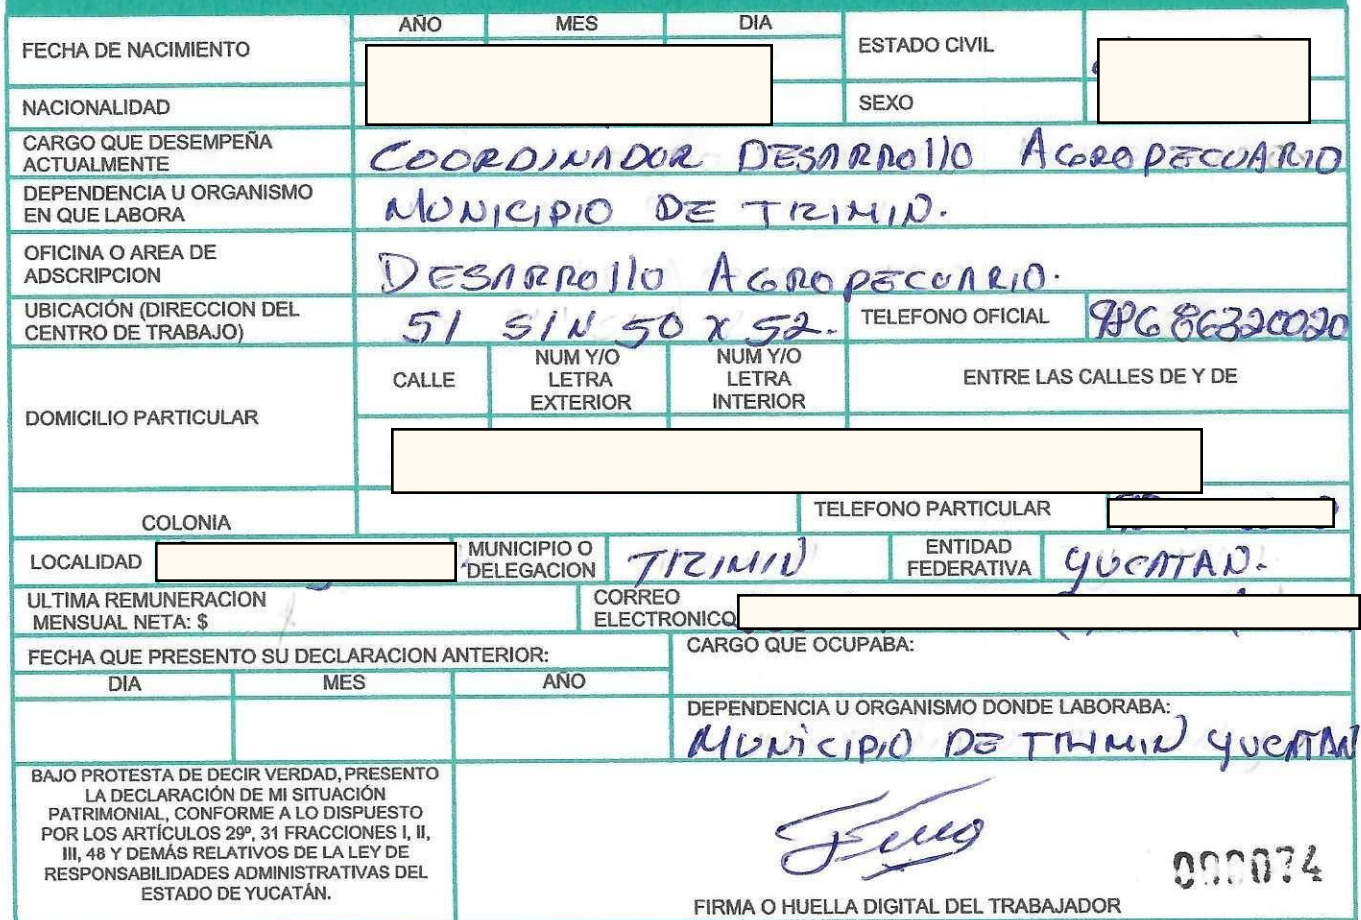 AÑO MES DIA
FECHA DE NACIMIENTO
ESTADO CIVIL
NACIONALIDAD
SEXO
CARGO QUE DESEMPEÑA
ACTUALMENTE
COORDINADOR DESARROllO AGROPECUARIO
DEPENDENCIA U ORGANISMO
EN QUE LABORA
MUNICIPIO DE TIZIMIN.
OFICINA O AREA DE
ADSCRIPCION
DESARROllO AGROPECUARIO.
UBICACIÓN (DIRECCION DEL
CENTRO DE TRABAJO)
51 S/N 50 X 52.
TELEFONO OFICIAL
986 86320020
DOMICILIO PARTICULAR
CALLE
NUM Y/O
LETRA
EXTERIOR
NUM Y/O
LETRA
INTERIOR
ENTRE LAS CALLES DE Y DE
COLONIA
TELEFONO PARTICULAR
LOCALIDAD
MUNICIPIO O
DELEGACION
TIZIMIN
ENTIDAD
FEDERATIVA
YUCATAN.
ULTIMA REMUNERACION
MENSUAL NETA: $
CORREO
ELECTRONICO
FECHA QUE PRESENTO SU DECLARACION ANTERIOR:
DIA MES AÑO
CARGO QUE OCUPABA:
DEPENDENCIA U ORGANISMO DONDE LABORABA:
MUNICIPIO DE TIZIMIN YUCATAN
BAJO PROTESTA DE DECIR VERDAD, PRESENTO
LA DECLARACIÓN DE MI SITUACIÓN
PATRIMONIAL, CONFORME A LO DISPUESTO
POR LOS ARTÍCULOS 29º, 31 FRACCIONES I, II,
III, 48 Y DEMÁS RELATIVOS DE LA LEY DE
RESPONSABILIDADES ADMINISTRATIVAS DEL
ESTADO DE YUCATÁN.
000074
FIRMA O HUELLA DIGITAL DEL TRABAJADOR